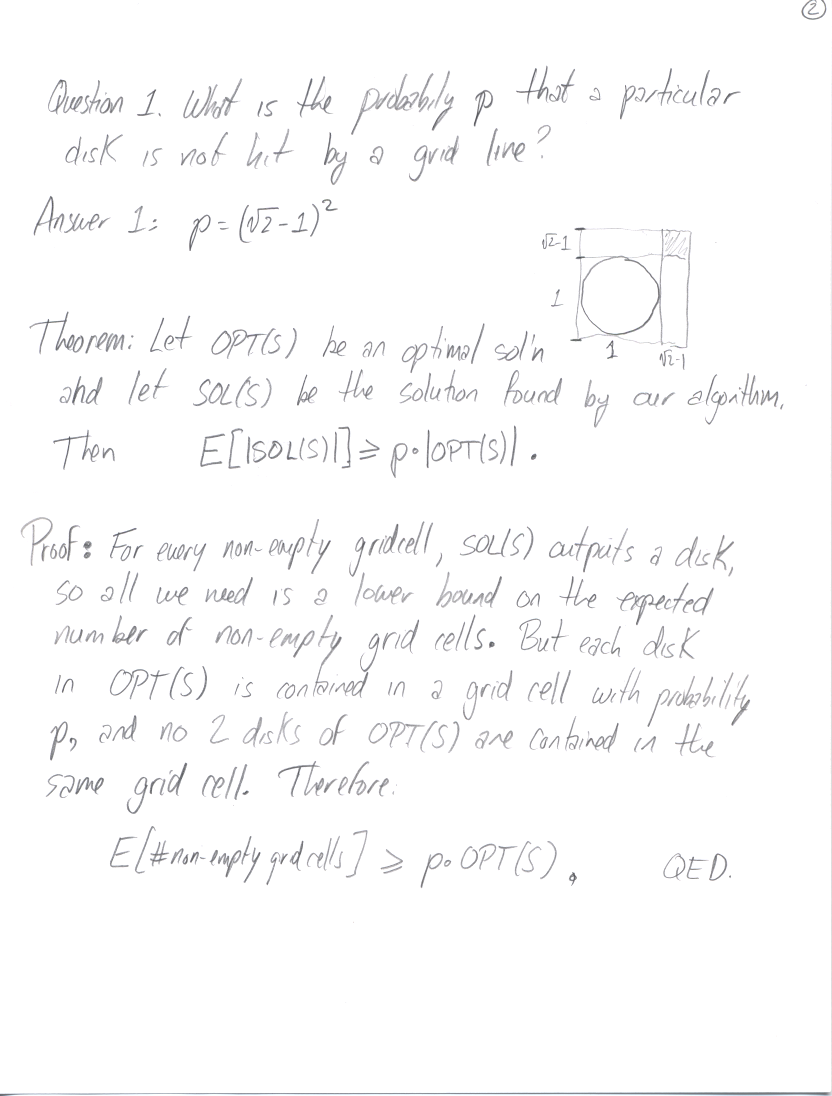 ②
Question 1. What is the probabily p that a particular
disk is not hit by a grid line?
Answer 1: p = (√2-1)²
√2-1
1
1
√2-1
Theorem: Let OPT(S) be an optimal sol'n
and let SOL(S) be the solution found by our algorithm.
Then E[|SOL(S)|] ≥ p•|OPT(S)|.
Proof: For every non-empty gridcell, SOL(S) outputs a disk,
so all we need is a lower bound on the expected
number of non-empty grid cells. But each disk
in OPT(S) is contained in a grid cell with probability
p, and no 2 disks of OPT(S) are contained in the
same grid cell. Therefore:
E[#non-empty grid cells] ≥ p•OPT(S). QED.